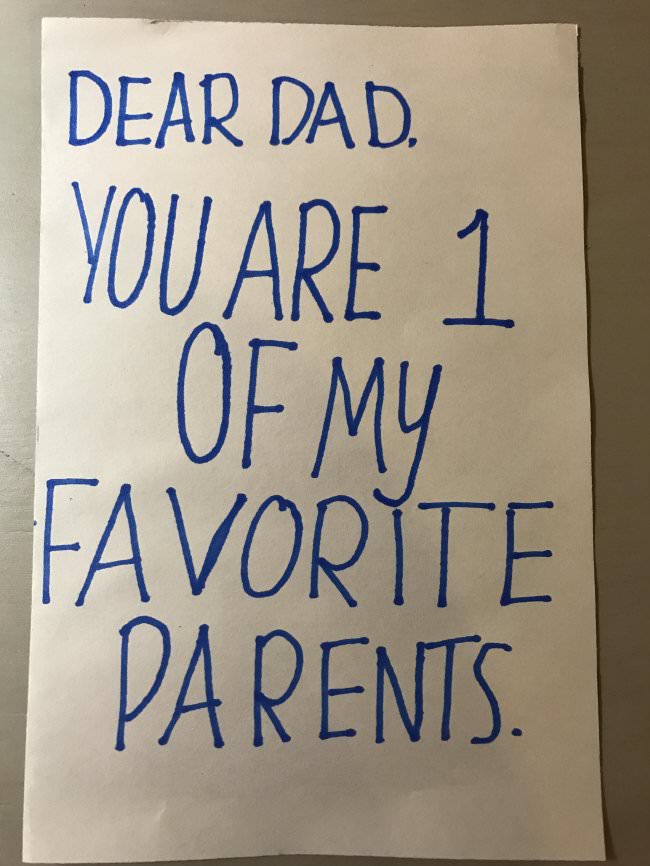 DEAR DAD.
YOU ARE 1
OF MY
FAVORITE
PARENTS.